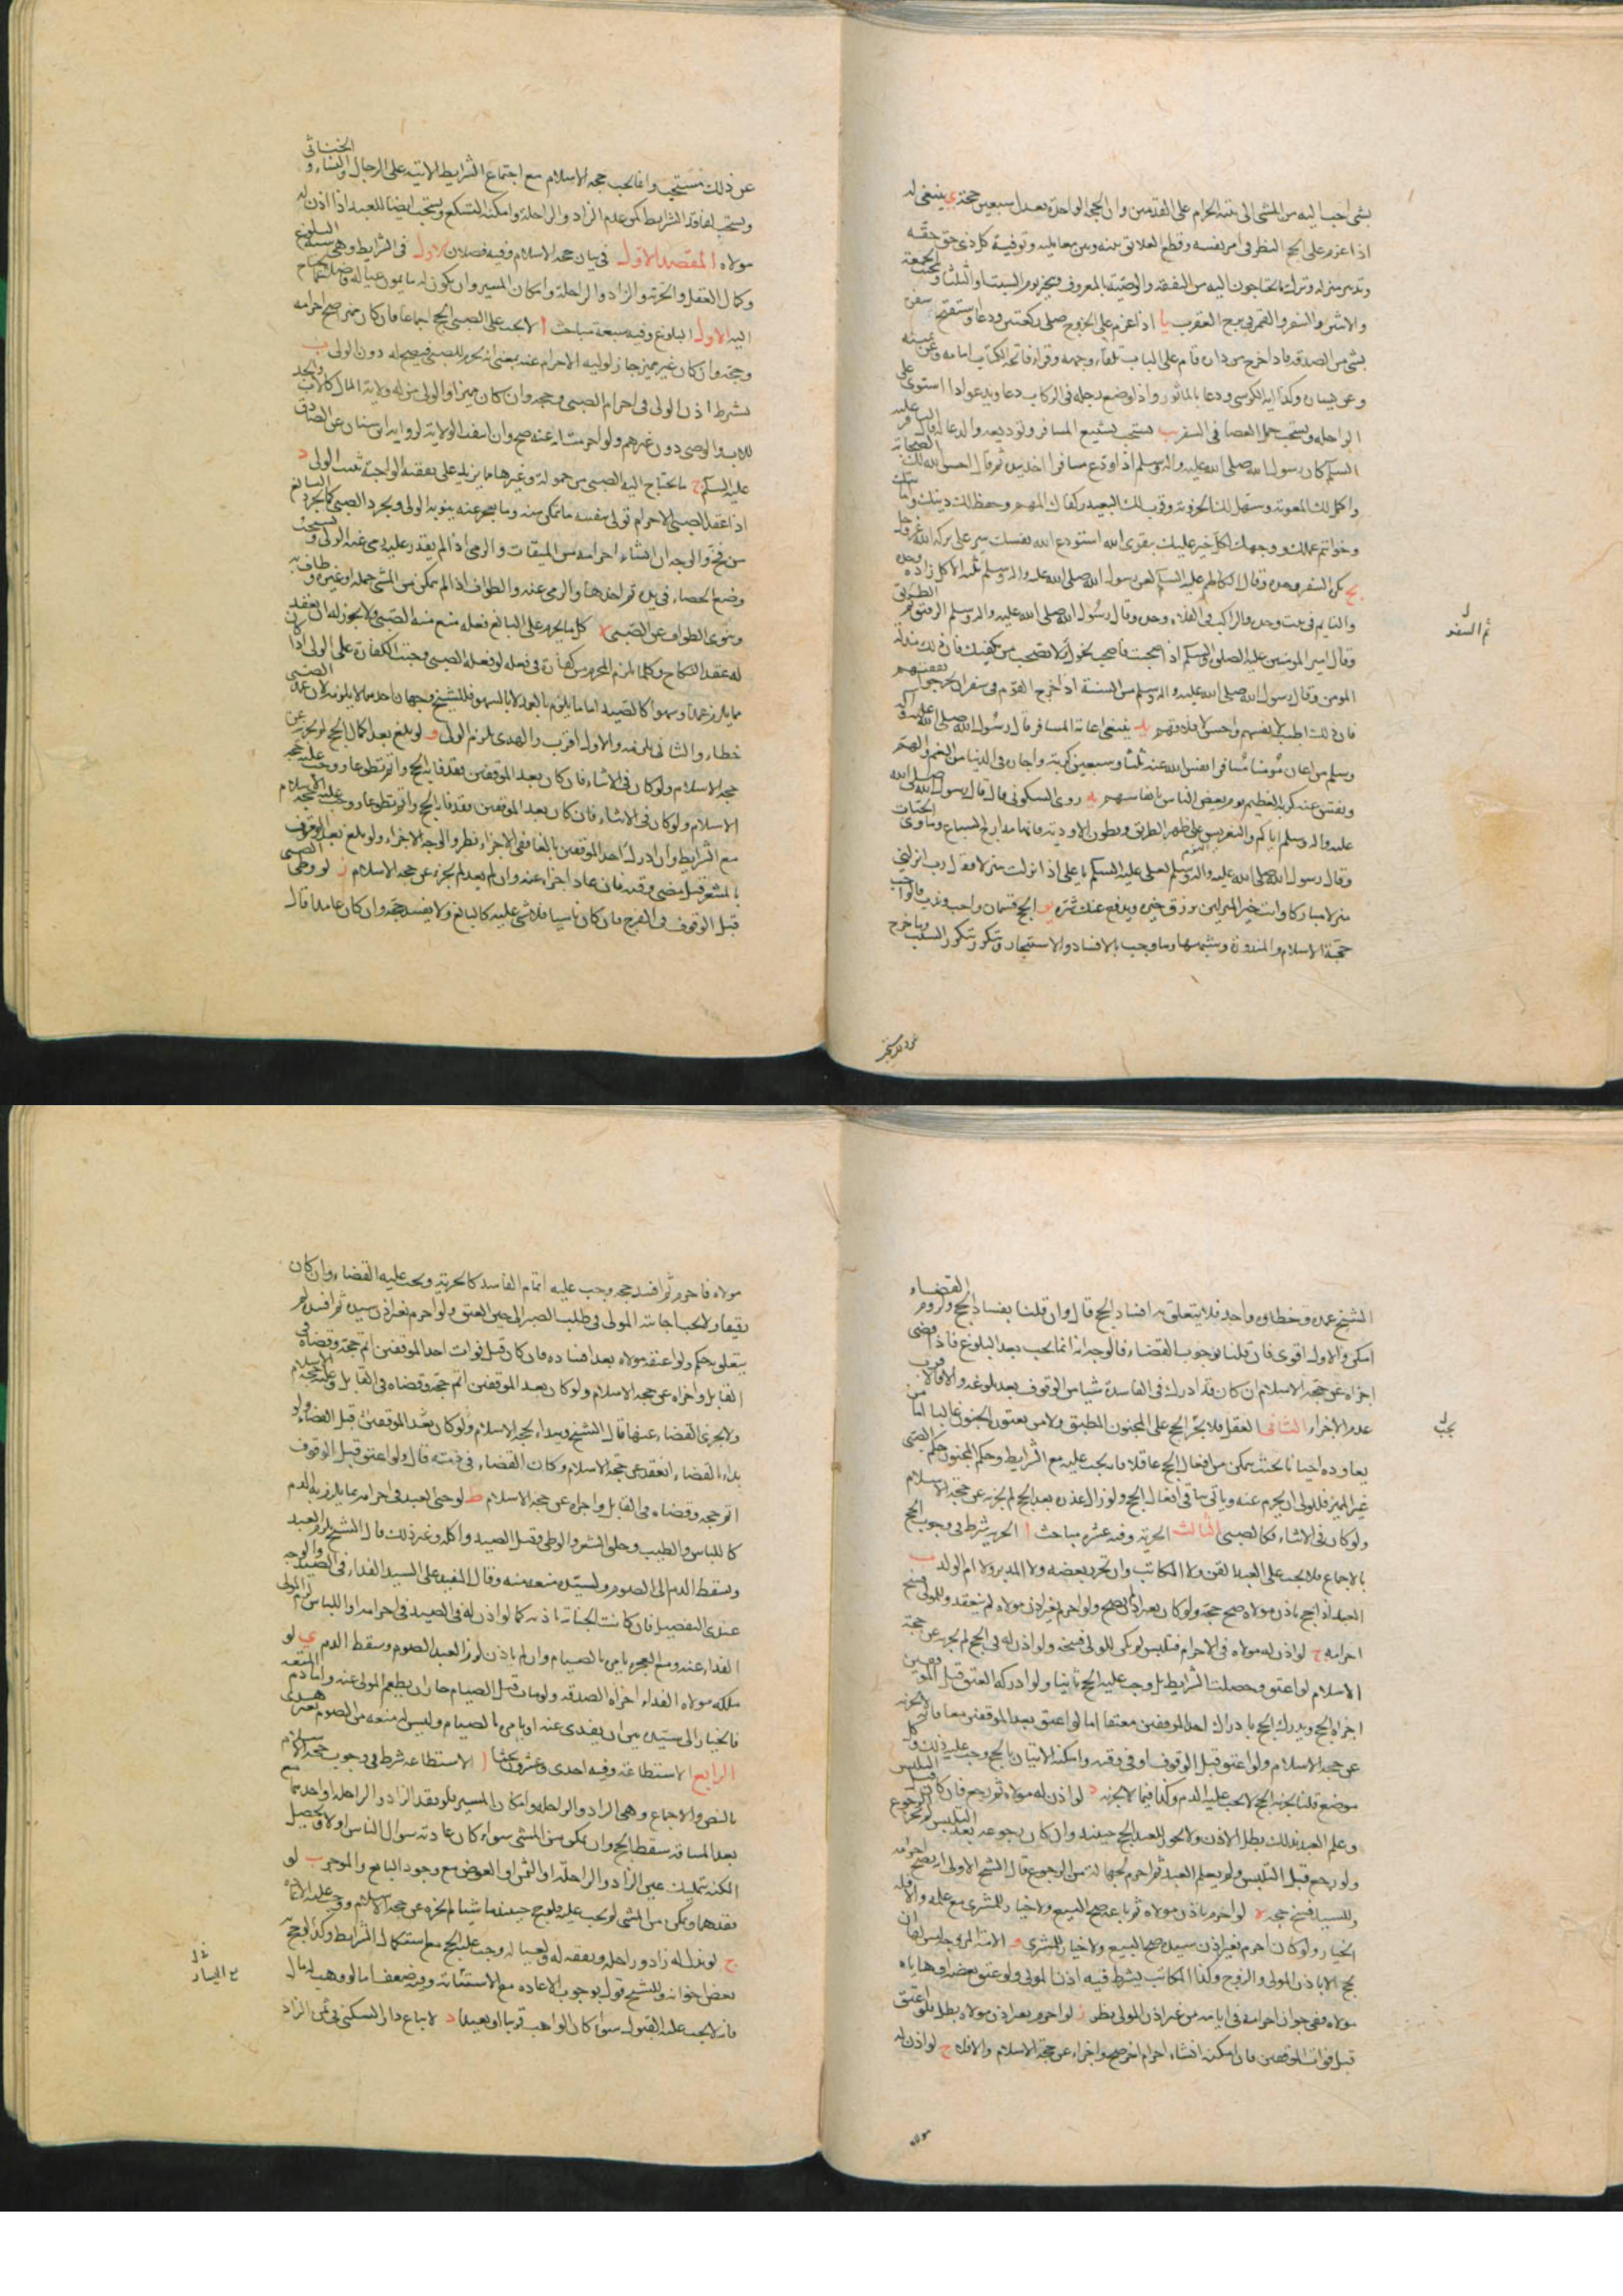 بشى احب اليه من المشى الى بيته الحرام على القدمين وان الحجة الواحدة تعدل سبعين حجة ى ينبغى له
اذا عزم على الحج النظر فى امر نفسه وقطع العلائق بينه وبين معامليه وتوفية كل ذى حق حقه
وتدبير منزله وترك ما يحتاجون اليه من النفقة والوصية بالمعروف ويتخير يوم السبت او الثلثا ويجتنب الجمعة
والاثنين والسفر والقمر فى برج العقرب يا اذا عزم على الخروج صلى ركعتين ودعا واستفتح سفره
بشى من الصدقة فاذا خرج من داره قام على الباب تلقاء وجهه وقرأ فاتحة الكتاب امامه وعن يمينه
وعن يساره وكذا اية الكرسى ودعا بالماثور واذا وضع رجله فى الركاب دعا ويدعو اذا استوى على
الراحلة ويستحب حمل العصا فى السفر يب يستحب تشييع المسافر وتوديعه والدعا له قال الباقر عليه
السلم كان رسول الله صلى الله عليه واله وسلم اذا ودع مسافرا اخذ بيده ثم قال احسن الله لك الصحابة
واكمل لك المعونة وسهل لك الحزونة وقرب لك البعيد وكفاك المهم وحفظ لك دينك وامانتك
وخواتيم عملك ووجهك لكل خير عليك بتقوى الله استودع الله نفسك سر على بركة الله عز وجل
يج يكره السفر وحده وقال الكاظم عليه السلم لعن رسول الله صلى الله عليه واله وسلم ثلثة الاكل زاده وحده
والنايم فى بيت وحده والراكب فى الفلاة وحده وقال رسول الله صلى الله عليه واله وسلم الرفيق ثم الطريق
ثم السفر
وقال امير المومنين عليه الصلوة والسلم اذا صحبت فاصحب نحوك ولا تصحب من يكفيك فان ذلك مذلة
المومن وقال رسول الله صلى الله عليه واله وسلم من السنة اذا خرج القوم فى سفر ان يخرجوا نفقتهم
فان ذلك اطيب لانفسهم واحسن لاخلاقهم يد ينبغى اعانة المسافر قال رسول الله صلى الله عليه واله
وسلم من اعان مومنا مسافرا نفس الله عنه ثلثا وسبعين كربة واجاره فى الدنيا من الغم والهم
ونفس عنه كربه العظيم يوم يغص الناس بانفاسهم يه روى السكونى قال قال رسول الله صلى الله
عليه واله وسلم اياكم والتعريس على ظهر الطريق وبطون الاودية فانها مدارج السباع وماوى الحيات
وقال رسول الله صلى الله عليه واله وسلم لعلى عليه السلم يا على اذا نزلت منزلا فقل رب انزلنى
منزلا مباركا وانت خير المنزلين ترزق خيره ويدفع عنك شره يو الحج قسمان واجب وندب فالواجب
حجة الاسلام والمنذورة وشبهها وما وجب بالافساد والاستيجار ويتكرر بتكرر السبب وما خرج
عن ذلك مستحب وانما تجب حجة الاسلام مع اجتماع الشرايط الاتية على الرجال والنساء والخناثى
ويستحب لفاقد الشرايط كمن عدم الزاد والراحلة وامكنه التسكع ويستحب ايضا للعبد اذا اذن له
مولاه المقصد الاول فى بيان حجة الاسلام وفيه فصلان الاول فى الشرايط وهى ستة البلوغ
وكمال العقل والحرية والزاد والراحلة وامكان المسير وان يكون له ما يمون عياله فاضلا عما يحتاج
اليه الاول البلوغ وفيه سبعة مباحث ا لا يجب على الصبى الحج اجماعا فان كان مميز اصح احرامه
وحجه وان كان غير مميز جاز لوليه الاحرام عنه بمعنى انه يحرم للصبى فيصح له دون الولى ب
يشترط اذن الولى فى احرام الصبى وحجه وان كان مميزا والولى من له ولاية المال كالاب والجد
للاب والوصى دون غيرهم ولو احرمت امه عنه صح وان انتفت الولاية لرواية ابن سنان عن الصادق
عليه السلم ج ما يحتاج اليه الصبى من حمولة وغيرها مما يزيد على نفقته الواجبة تثبت الولى د
اذا عقل الصبى الاحرام تولى بنفسه ما تمكن منه وما يعجز عنه ينوبه الولى ويجرد الصبى كما يجرد البالغ
من فخ والوجه ان انشاء احرامه من الميقات والرمى اذا لم يقدر عليه رمى عنه الولى ويستحب
وضع الحصاء فى يده ثم اخذها والرمى عنه والطواف اذا لم يمكن من المشى حمله او غيره وطاف به
وينوى الطواف عن الصبى ه كل ما يحرم على البالغ فعله منع منه الصبى ولا يجوز له ان يعقد
له عقد النكاح وكلما يلزم المحرم من كفارة فى فعله لو فعله الصبى وجبت الكفارة على الولى اذا كان
مما يلزم عمدا وسهوا كالصيد اما ما يلزم بالعمد لا بالسهو فللشيخ وجهان احدهما لا يلزم لان عمد الصبى
خطاء والثانى يلزمه والاول اقرب والهدى يلزم الولى و لو بلغ بعد اكمال الحج لم يجز عن
حجة الاسلام ولو كان فى الاثناء فان كان بعد الموقفين فقد فاته الحج واتم تطوعا ووجب عليه حجة
الاسلام ولو كان فى الاثناء فان كان بعد الموقفين فقد فاته الحج واتم تطوعا ووجب عليه حجة الاسلام
مع الشرايط وان ادرك احد الموقفين بالغا ففى الاجزاء نظر والوجه الاجزاء ولو بلغ بعد الوقوف
بالمشعر قبل مضى وقته فان عاد اجزاء عنه وان لم يعد لم يجزه عن حجة الاسلام ز لو وطى الصبى
قبل الوقوف فى الفرج فان كان ناسيا فلا شى عليه كالبالغ ولا يفسد حجه وان كان عامدا قال
الشيخ عمده وخطاؤه واحد فلا يتعلق به افساد الحج قال وان قلنا يفسد الحج ولزوم القضاء
امكن والاول اقوى فان قلنا بوجوب القضاء فالوجه انه انما يجب بعد البلوغ فاذا قضى
اجزاه عن حجة الاسلام ان كان قد ادرك فى الفاسدة شيا من الوقوف بعد بلوغه والا فالاقرب
عدم الاجزاء الثانى العقل فلا يجب الحج على المجنون المطبق ولا من يعتوره الجنون غالبا اما من
يجب
يعاوده احيانا بحيث يتمكن من افعال الحج عاقلا فانه يجب عليه مع الشرايط وحكم المجنون حكم الصبى
غير المميز فللولى ان يحرم عنه وياتى بباقى افعال الحج ولو زال عذره بعد الحج لم يجزه عن حجة الاسلام
ولو كان فى الاثناء فكالصبى الثالث الحرية وفيه عشرة مباحث ا الحرية شرط فى وجوب الحج
بالاجماع فلا يجب على العبد القن ولا المكاتب وان تحرر بعضه ولا المدبر ولا ام الولد ب
العبد اذا حج باذن مولاه صح حجه ولو كان بغير اذن لم يصح ولو احرم بغير اذن مولاه لم ينعقد وللمولى فسخ
احرامه ج لو اذن له مولاه فى الاحرام فتلبس لم يكن للمولى فسخه ولو اذن له فى الحج لم يجزه عن حجة
الاسلام لو اعتق وحصلت الشرايط بل وجب عليه الحج ثانيا ولو ادركه العتق قبل الموقفين
اجزاه الحج ويدرك الحج بادراك احد الموقفين معتقا اما لو اعتق بعد الموقفين معا فانه لا يجزيه
عن حجة الاسلام ولو اعتق قبل الوقوف او فى وقته وامكنه الاتيان بالحج وجب عليه ذلك وكل
موضع قلنا يجزيه الحج لا يجب عليه الدم وكذا فيما لا يجزيه د لو اذن له مولاه ثم رجع فان كان قبل التلبس
وعلم العبد بذلك بطل الاذن ولا يجوز للعبد الحج حينئذ وان كان رجوعه بعد التلبس لم يجز الرجوع
ولو رجع قبل التلبس ولم يعلم العبد ثم احرم لجهالته من الرجوع قال الشيخ الاولى ان يصح احرامه
وللسيد فسخ حجه ه لو احرم باذن مولاه ثم باعه صح البيع ولا خيار للمشترى مع علمه والا فله
الخيار ولو كان احرم بغير اذن سيده صح البيع ولا خيار للمشترى و الامة المزوجة ليس لها ان
تحج الا باذن المولى والزوج وكذا المكاتب يشترط فيه اذن المولى ولو عتق بعضه وهاياه
مولاه ففى جواز احرامه فى ايامه من غير اذن المولى نظر ز لو احرم بغير اذن مولاه بطل فلو اعتق
قبل فوات الموقفين فان امكنه انشاء احرام اخر صح واجزاء عن حجة الاسلام والا فلا ح لو اذن له
مولاه
مولاه فاحرم ثم افسد حجه وجب عليه اتمام الفاسد كالحر ويجب عليه القضاء وان كان
رقيقا ولا يجب اجابة المولى فى طلب الصبر الى حين العتق ولو احرم بغير اذن سيده ثم افسد لم
يتعلق به حكم ولو اعتقه مولاه بعد افساده فان كان قبل فوات احد الموقفين اتم حجه وقضاه فى
القابل واجزاه عن حجة الاسلام ولو كان بعد الموقفين اتم حجه وقضاه فى القابل وعليه حجة الاسلام
ولا يجزى القضاء عنها قال الشيخ ويبداء بحجة الاسلام ولو كان بعد الموقفين قبل القضاء ولو
بداء بالقضاء انعقد عن حجة الاسلام وكان القضاء فى ذمته قال ولو اعتق قبل الوقوف
اتم حجه وقضاه فى القابل واجزاه عن حجة الاسلام ط لو جنى العبد فى احرامه بما يلزم به الدم
كاللباس والطيب وحلق الشعر والوطى وقتل الصيد واكله وغير ذلك قال الشيخ لزم العبد
ويسقط الدم الى الصوم ولسيده منعه منه وقال المفيد على السيد الفداء فى الصيد والوجه
عندى التفصيل فان كانت الجناية باذنه كما لو اذن له فى الصيد فى احرامه او اللباس لزم المولى
الفداء عنه ومع العجز يامره بالصيام وان لم ياذن لزم العبد الصوم وسقط الدم ى لو
ملكه مولاه الفداء اجزاه الصدقة ولو مات قبل الصيام جاز ان يطعم المولى عنه واما دم المتعة
فالخيار الى سيده بين ان يهدى عنه او يامره بالصيام وليس له منعه من الصوم
الرابع الاستطاعة وفيه احدى وعشرون بحثا ا الاستطاعة شرط فى وجوب حجة الاسلام
بالنص والاجماع وهى الزاد والراحلة وامكان المسير فلو فقد الزاد والراحلة او احدهما مع
بعد المسافة سقط الحج وان تمكن من المشى سواء كان عادته سوال الناس او لا ويحصل
المكنة بتمليك عين الزاد والراحلة او الثمن او العوض مع وجود البايع والموجر ب لو
فقدهما وتمكن من المشى لم يجب عليه فلو حج حينئذ ماشيا لم يجزه عن حجة الاسلام ووجب عليه الاعادة
ج لو بذل له زاد وراحلة ونفقة له ولعياله وجب عليه الحج مع استكمال الشرايط وكذا لو حج به
بعض اخوانه وللشيخ قول بوجوب الاعادة مع الاستنابة وفيه ضعف اما لو وهب له مال
فانه لا يجب عليه القبول سواء كان الواهب قريبا او بعيدا د لا يباع دار السكنى فى ثمن الزاد